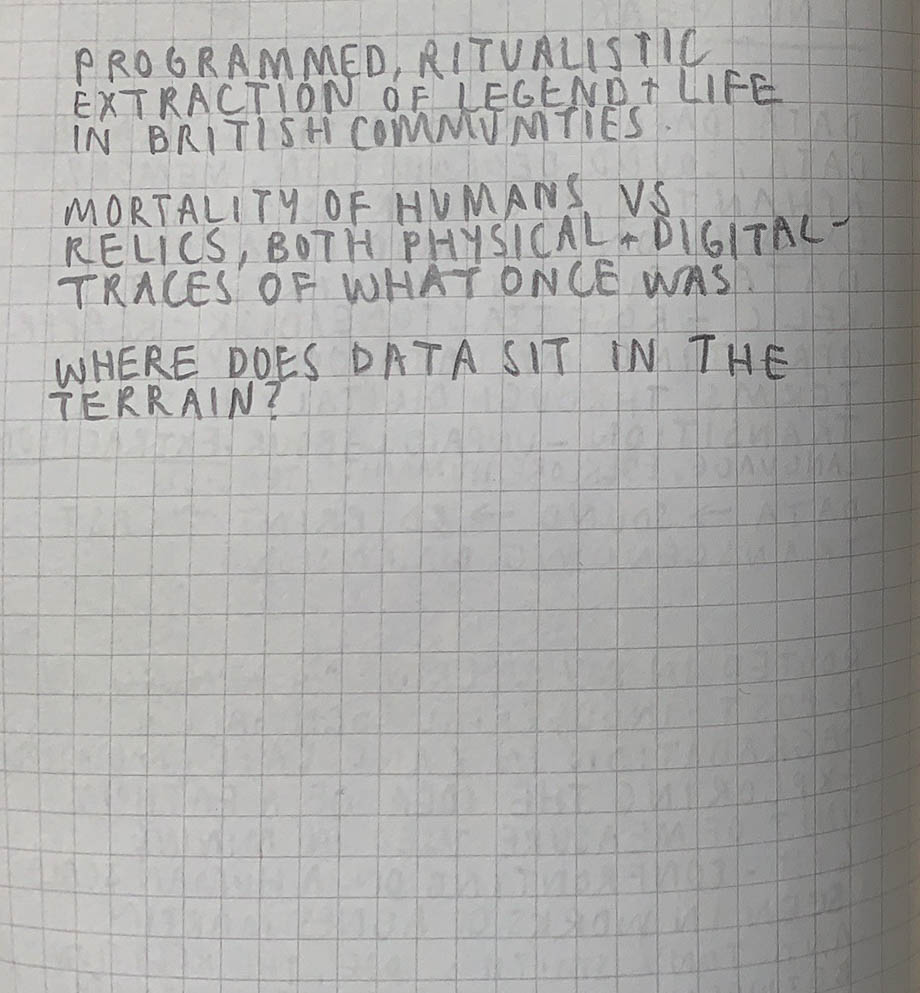 PROGRAMMED, RITUALISTIC
EXTRACTION OF LEGEND + LIFE
IN BRITISH COMMUNITIES.
MORTALITY OF HUMANS VS
RELICS, BOTH PHYSICAL + DIGITAL -
TRACES OF WHAT ONCE WAS.
WHERE DOES DATA SIT IN THE
TERRAIN?